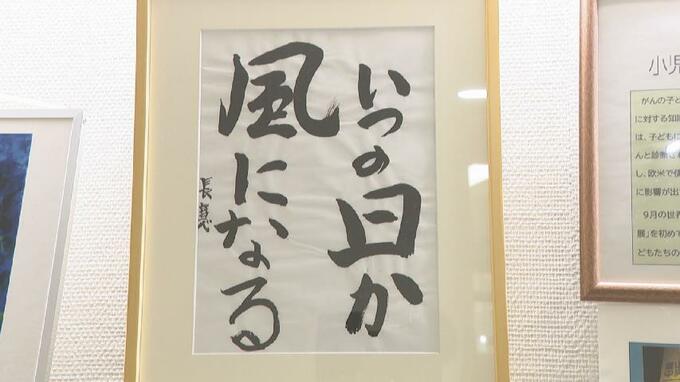 いつの日か
風になる
長慧
小児
がんの子と
に対する知
は、子どもに
んと診断さ
し、欧米で
に影響が出
９月の世界
展」を初めて
どもたちの